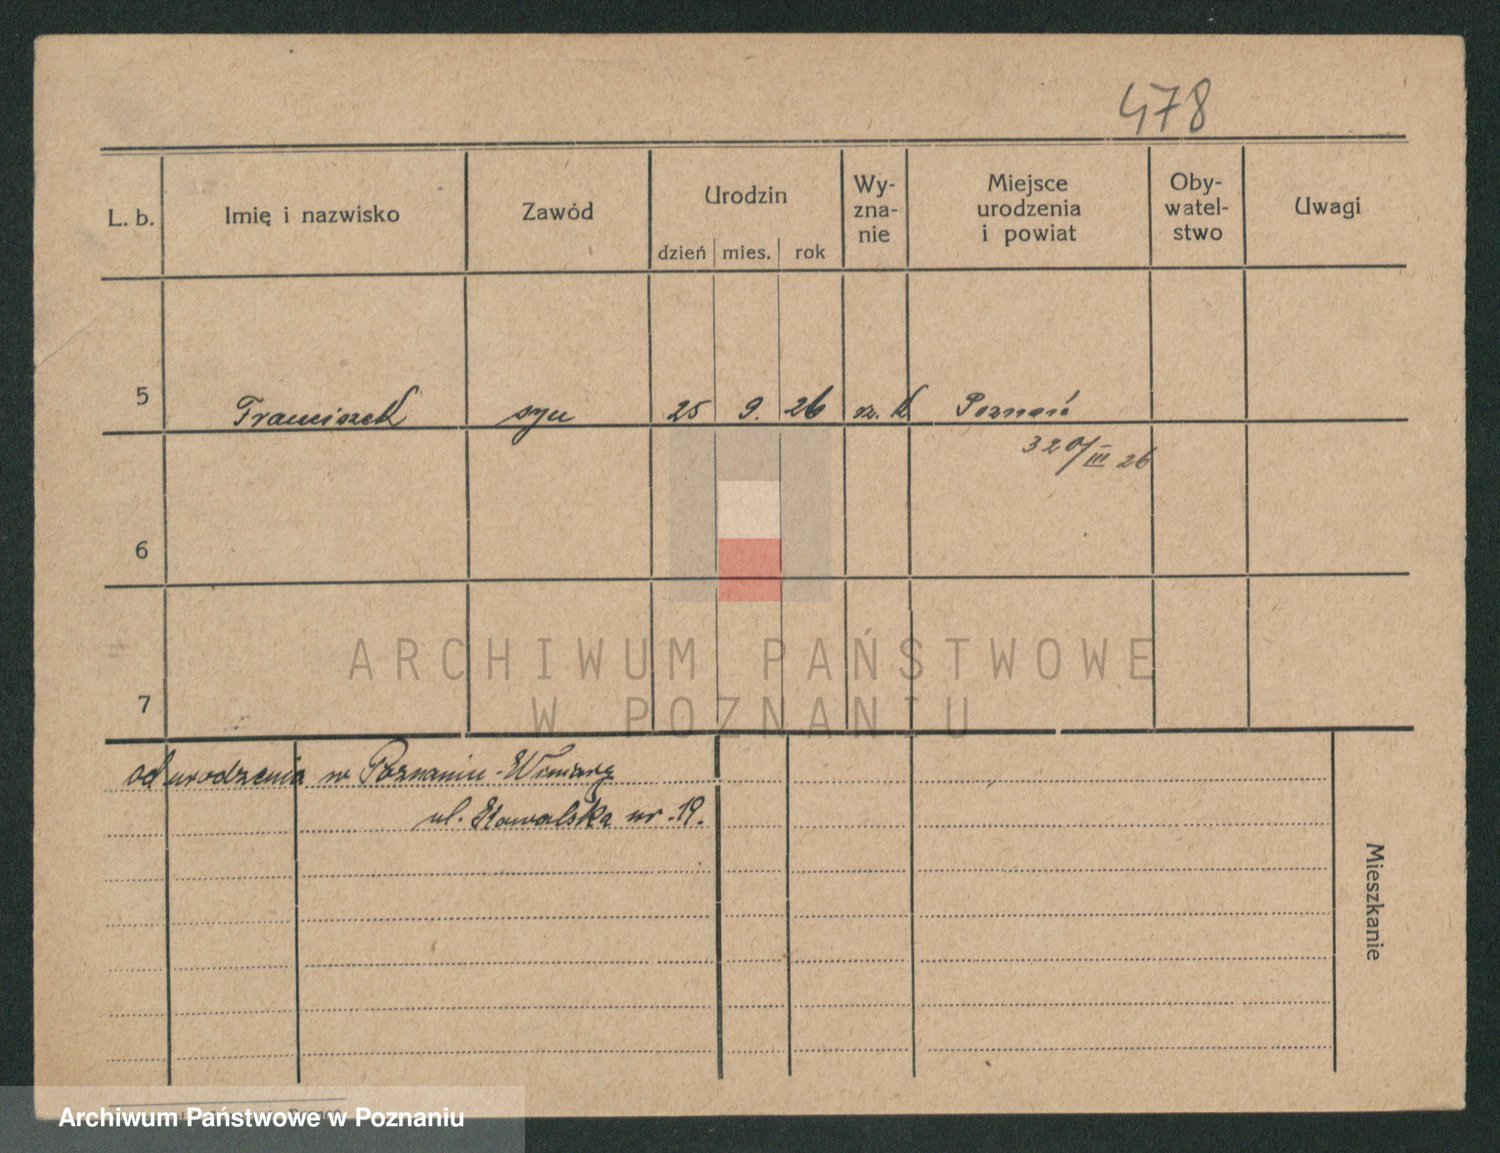 478
L. b. Imię i nazwisko Zawód Urodzin Wy-
zna-
nie Miejsce
urodzenia
i powiat Oby-
watel-
stwo Uwagi
dzień mies. rok
5 Franciszek syn 25 9. 26 rz. k Poznań
320/III 26
6
ARCHIWUM PAŃSTWOWE
W POZNANIU
7
od urodzenia w Poznaniu - Winiary
ul. nr. 19.
Mieszkanie
Archiwum Państwowe w Poznaniu